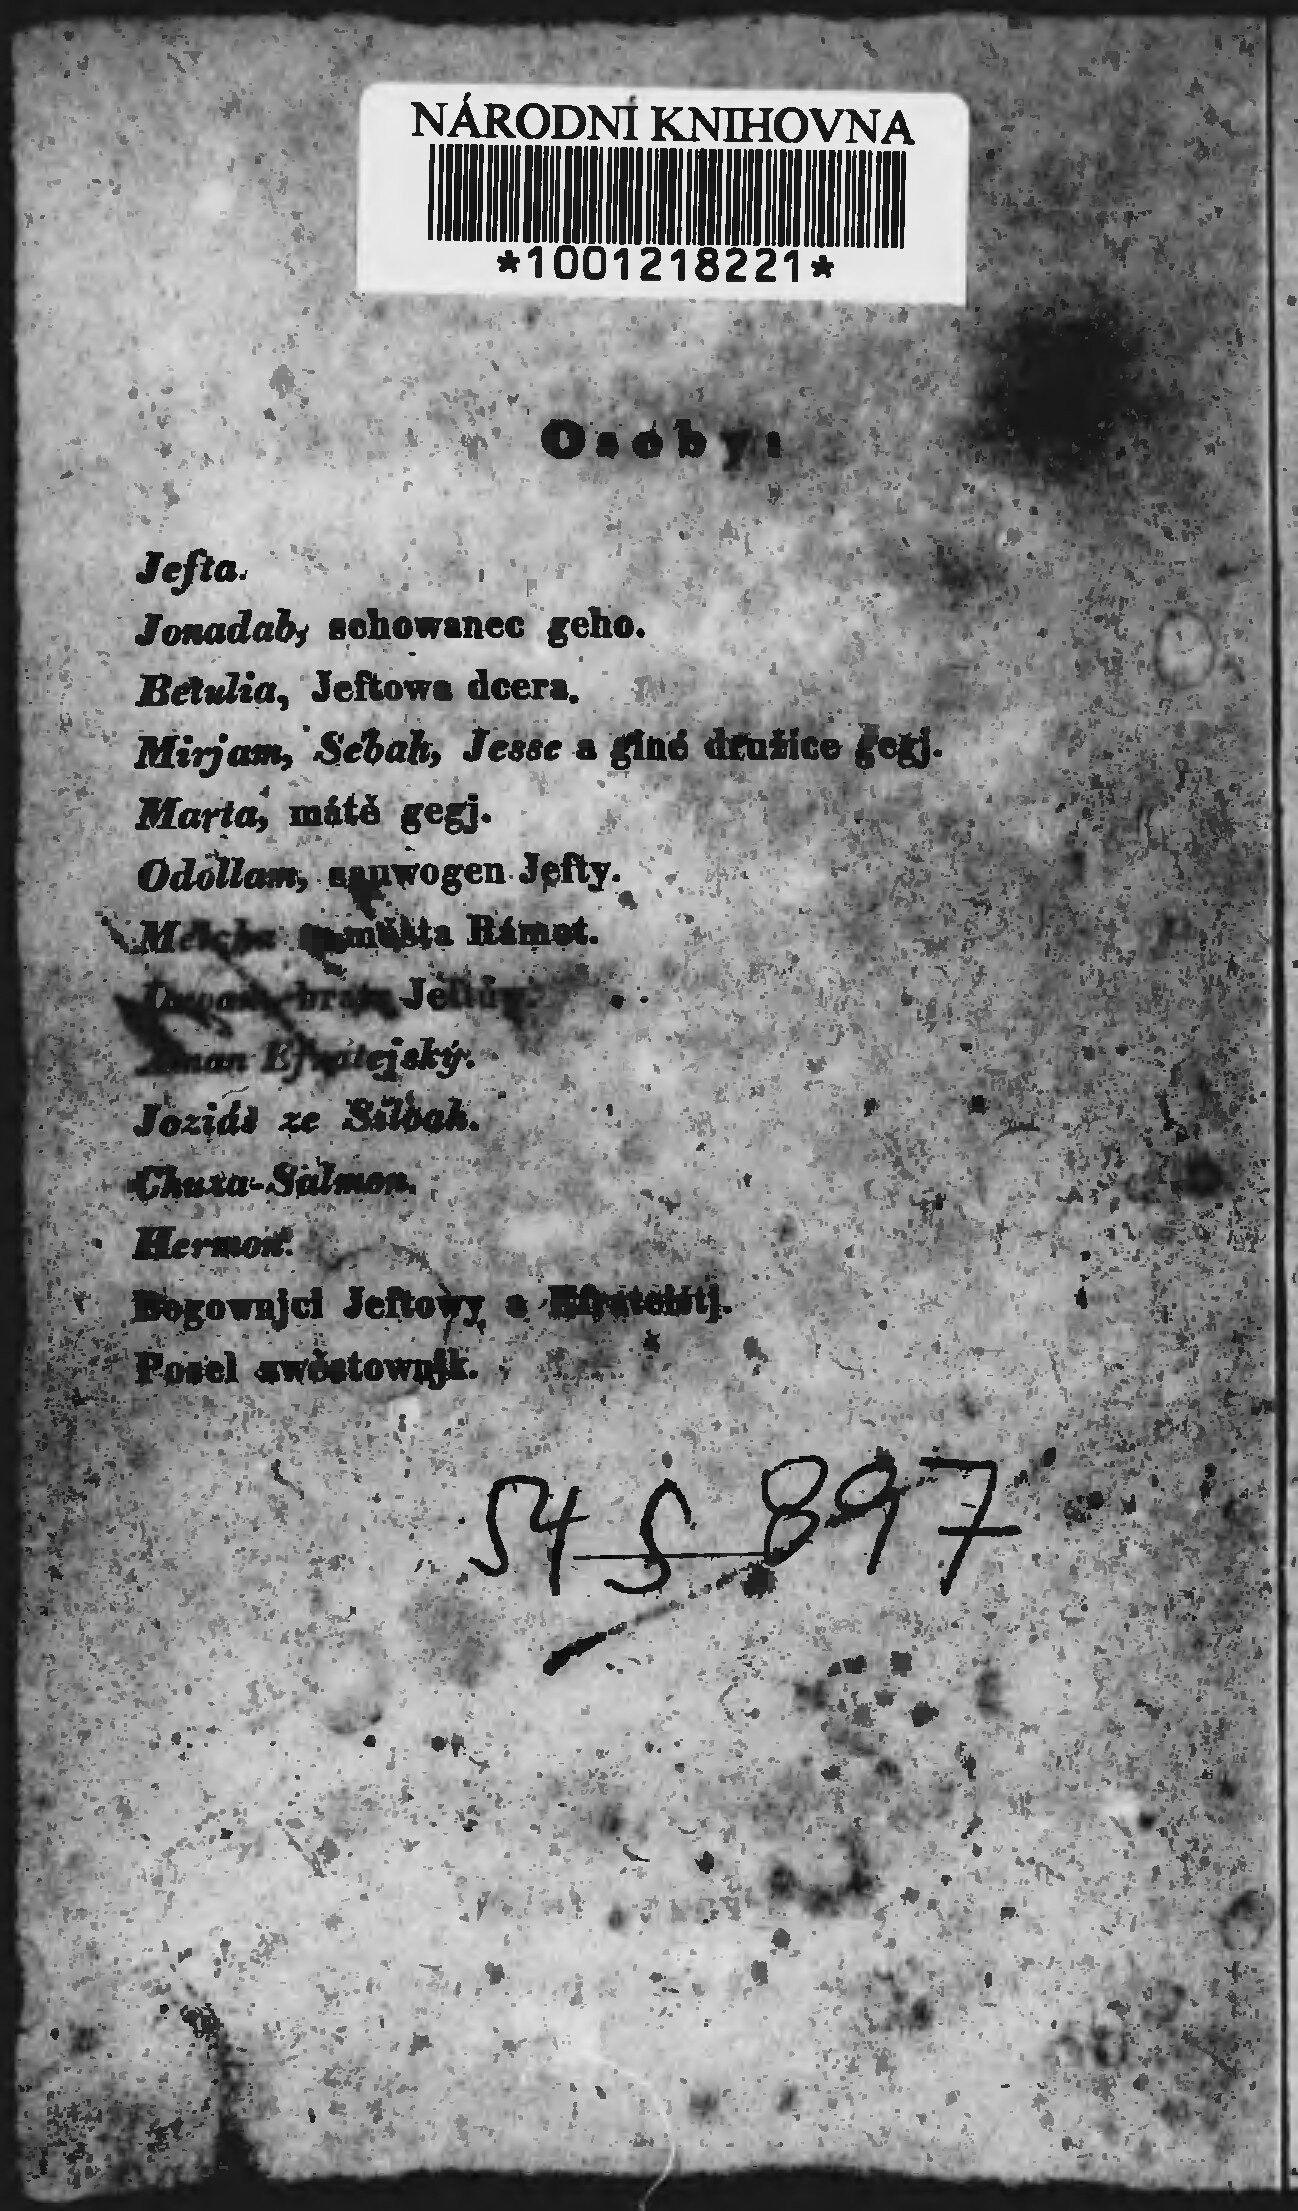 NÁRODNÍ KNIHOVNA
*1001218221*
Osoby:
Jefta.
Jonadab, schowanec geho.
Betulia, Jeftowa dcera.
Mirjam, Sebah, Jesse a giné družice gegj.
Marta, mátě gegj.
Odollam, sauwogen Jefty.
města Rámot.
bratr Jeftůw.
Efratejský.
Joziáš ze Siloah.
Chuza-Salmon.
Hermon.
Bogownjci Jeftowy a Efrateištj.
Posel zwěstownjk.
54 S 897